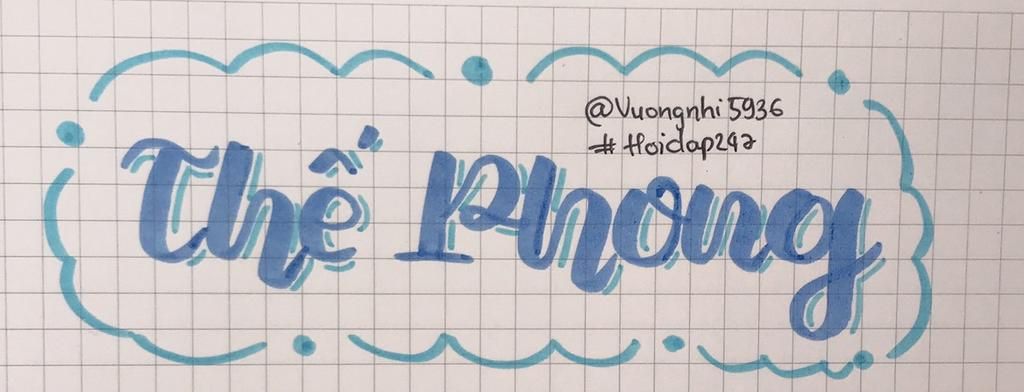 @Vuongnhi5936
#Hoidap247
Thế Phong